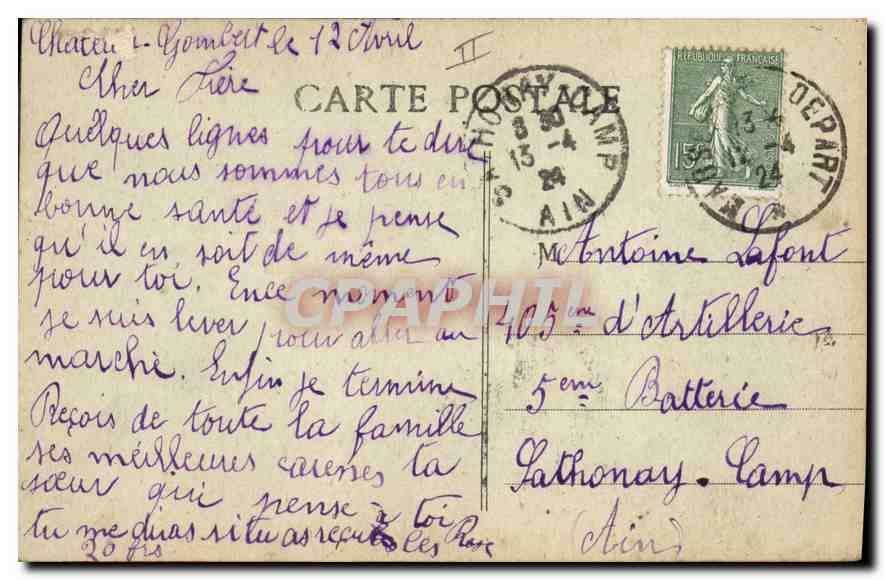 Chateau-Gombert le 12 Avril
Cher Frère
CARTE POSTALE
Quelques lignes pour te dire
que nous sommes tous en
bonne santé et je pense
qu'il en soit de même
pour toi. En ce moment
je suis lever pour aller au
marché. Enfin je termine
Reçois de toute la famille
ses meilleures caresses ta
sœur qui pense à toi
tu me diras si tu as reçu les Rose
20 frs
II
SATHONAY-CAMP
8 30
13 -4
24
AIN
REPUBLIQUE FRANÇAISE
15c
DEPART
13
12 -4
24
M Antoine Lafont
405 eme d'Artillerie
5 em Batterie
Sathonay-Camp
(Ain)
CPAPHIL